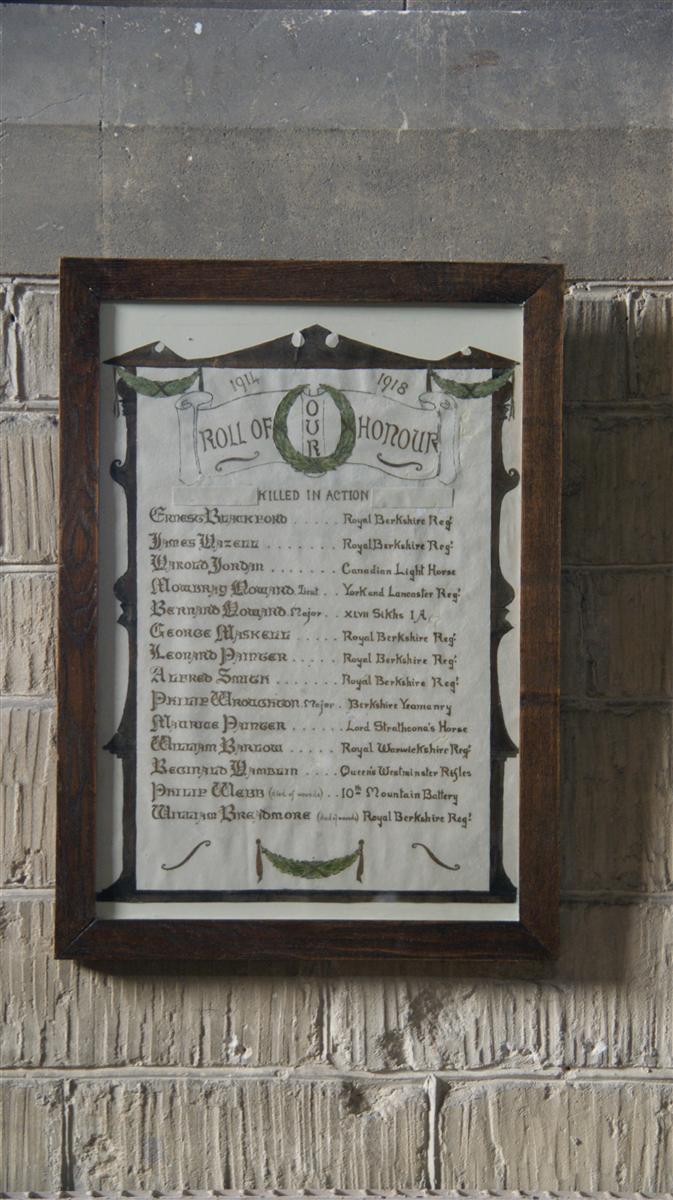 1914 1918
ROLL OF OUR HONOUR
KILLED IN ACTION
Ernest Blackford ..... Royal Berkshire Regt
James Hazell ....... Royal Berkshire Regt
Harold Jordan ....... Canadian Light Horse
Mowbray Howard Lieut .. York and Lancaster Regt
Bernard Howard Major .. XLVII Sikhs I.A.
George Maskell ..... Royal Berkshire Regt
Leonard Painter ..... Royal Berkshire Regt
Alfred Smith ..... Royal Berkshire Regt
Philip Wroughton Major . Berkshire Yeomanry
Maurice Painter ...... Lord Strathcona's Horse
William Barlow ...... Royal Warwickshire Regt
Reginald Hamblin .... Queen's Westminster Rifles
Philip Webb (died of wounds) .. 10th Mountain Battery
William Breadmore (died of wounds) Royal Berkshire Regt